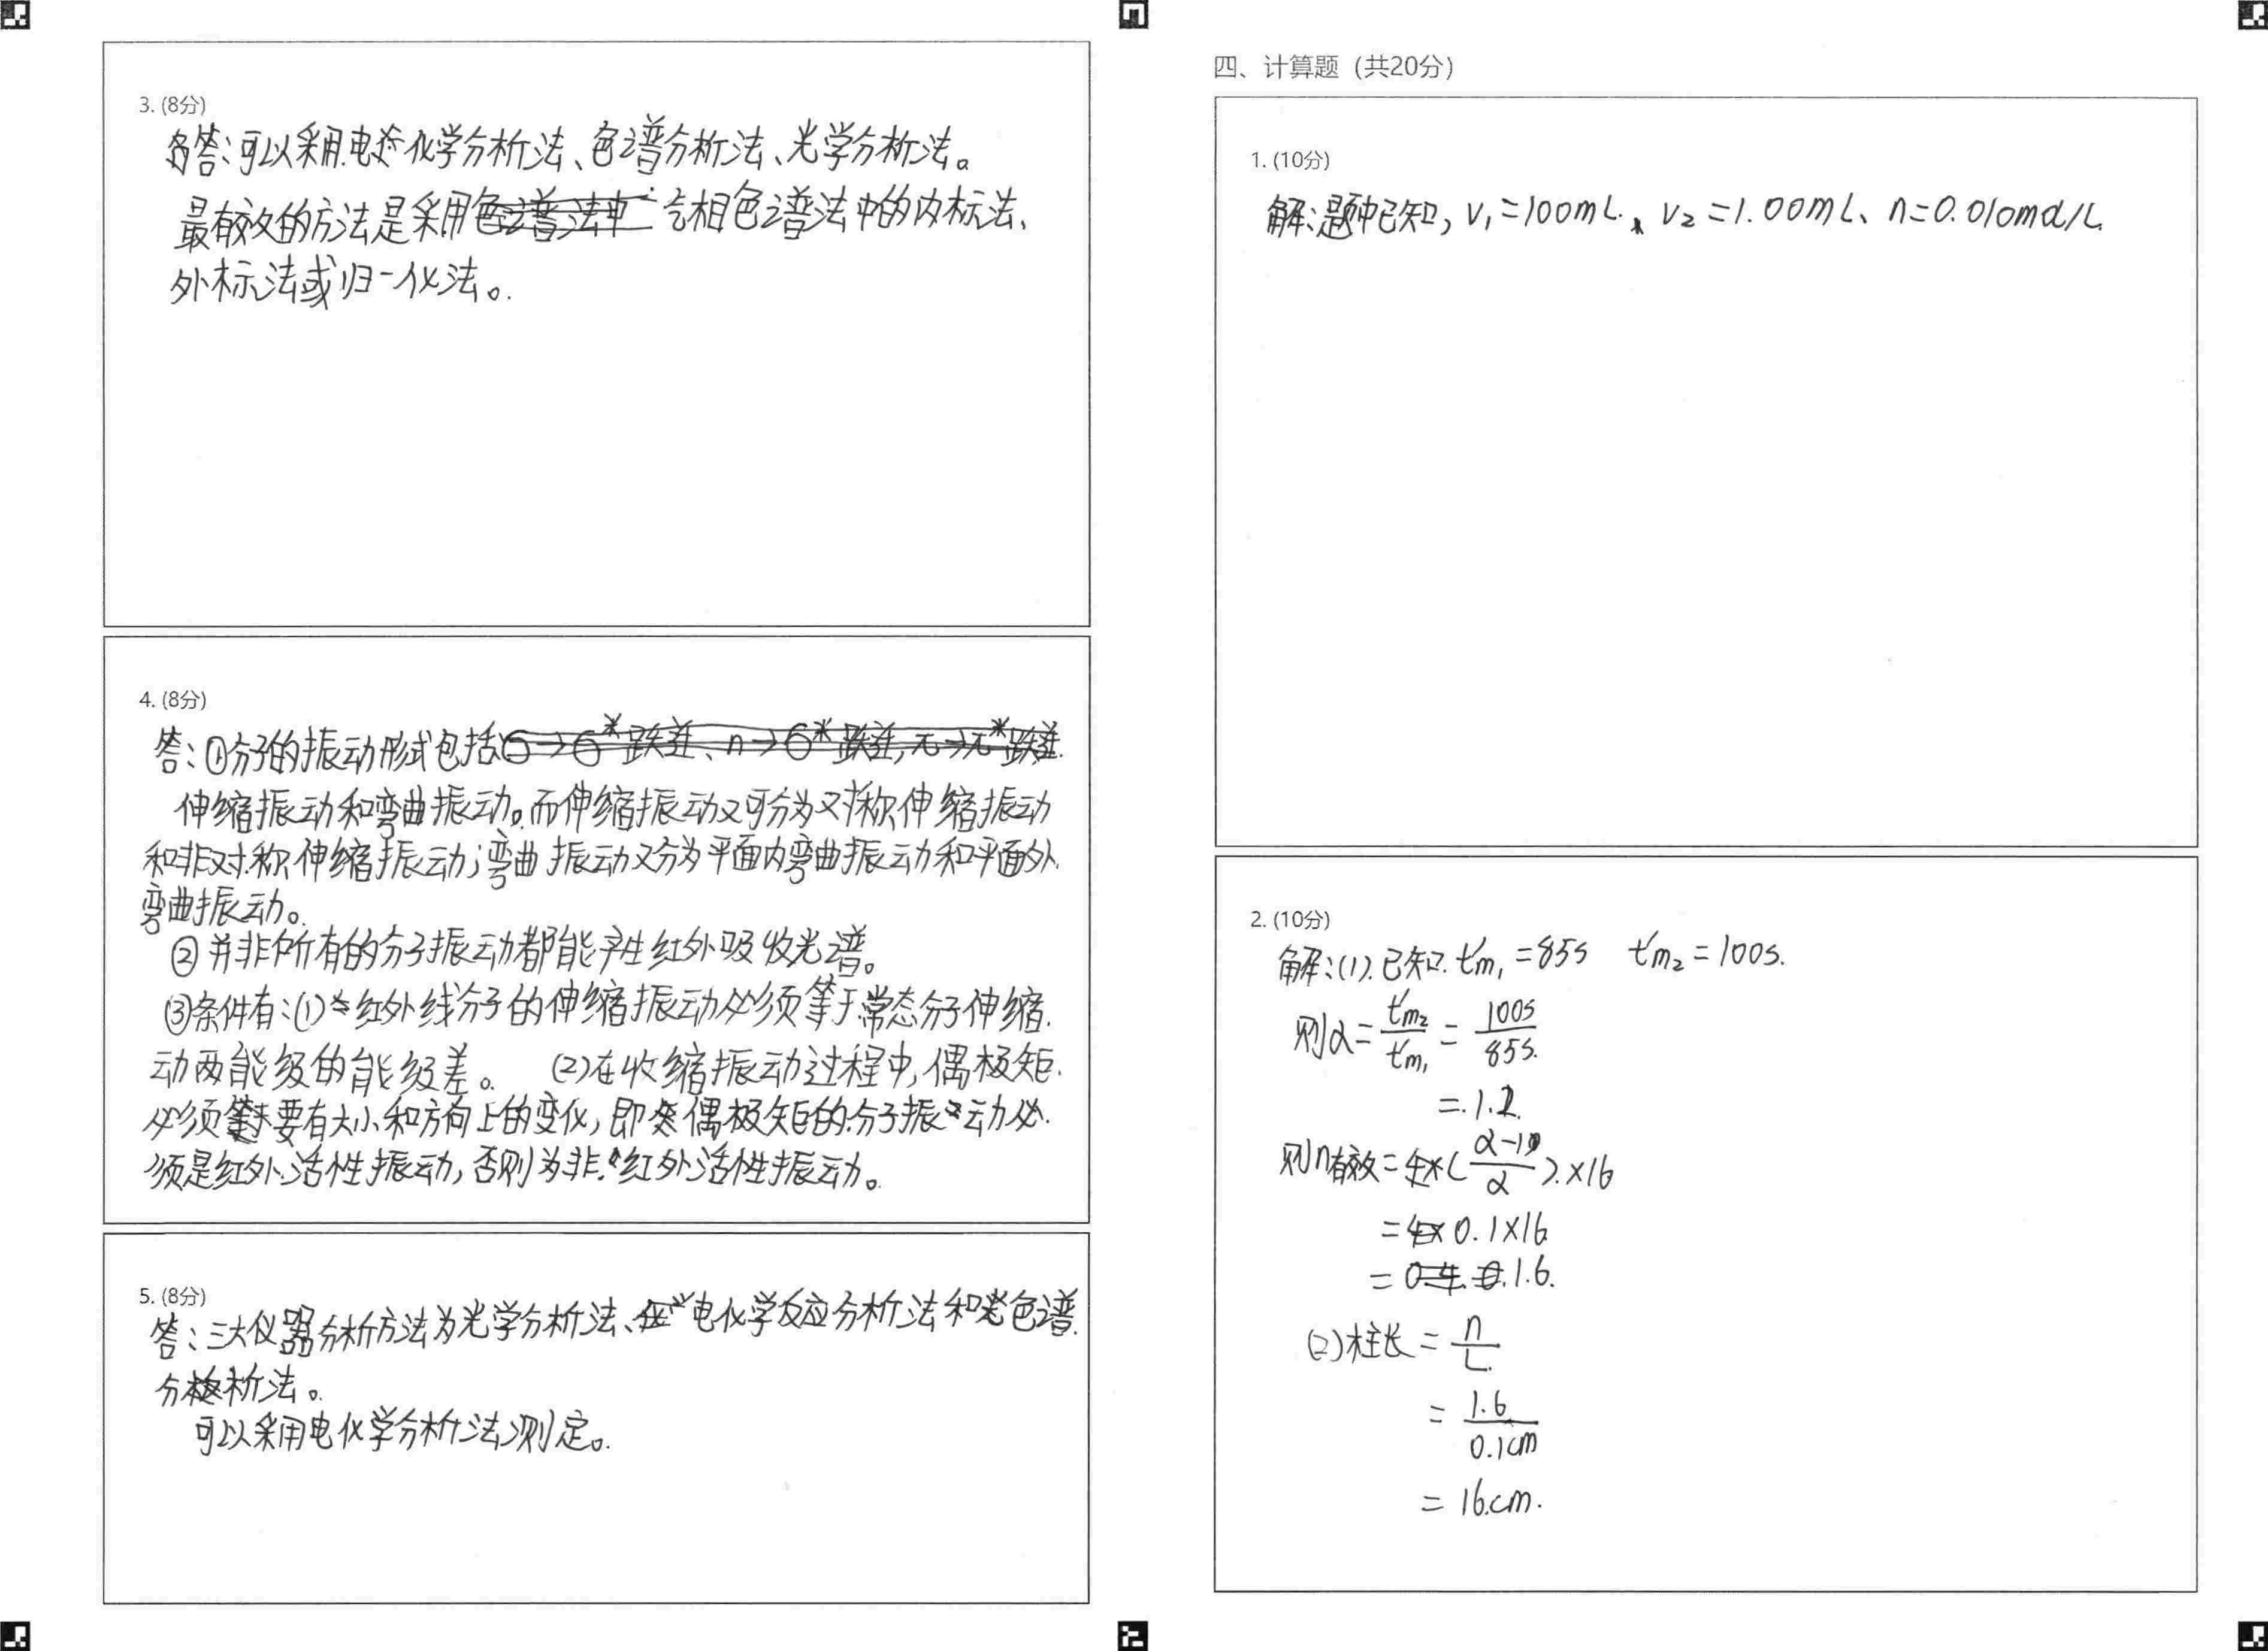 3. (8分)
答:可以采用电化学分析法、色谱分析法、光学分析法。
最有效的方法是采用气相色谱法中的内标法、
外标法或归一化法。
4. (8分)
答:①分子的振动形式包括
伸缩振动和弯曲振动。而伸缩振动又可分为对称伸缩振动
和非对称伸缩振动;弯曲振动又分为平面内弯曲振动和平面外
弯曲振动。
②并非所有的分子振动都能产生红外吸收光谱。
③条件有:(1)红外线分子的伸缩振动必须等于常态分子伸缩
动两能级的能级差。 (2)在收缩振动过程中,偶极矩
必须要有大小和方向上的变化,即偶极矩的分子振动必
须是红外活性振动,否则为非红外活性振动。
5. (8分)
答:三大仪器分析方法为光学分析法、电化学反应分析法和色谱
分析法。
可以采用电化学分析法测定。
四、计算题(共20分)
1. (10分)
解:题中已知, V₁=100mL、V₂=1.00mL、n=0.010mol/L
2. (10分)
解:(1).已知 t'm₁=85s t'm₂=100s.
则α=t'm₂/t'm₁=100s/85s.
=1.2
则n有效=(α-1/α)×16
=0.1×16
=1.6.
(2)柱长=n/L
=1.6/0.1cm
=16cm.